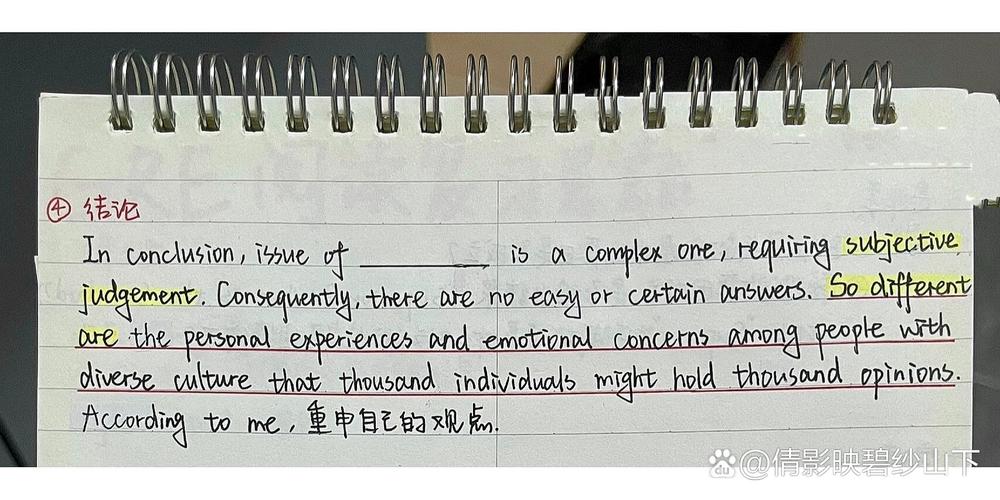 ④ 结论
In conclusion, issue of ________ is a complex one, requiring subjective
judgement. Consequently, there are no easy or certain answers. So different
are the personal experiences and emotional concerns among people with
diverse culture that thousand individuals might hold thousand opinions.
According to me, 重申自己的观点.
Bai du @倩影映碧纱山下